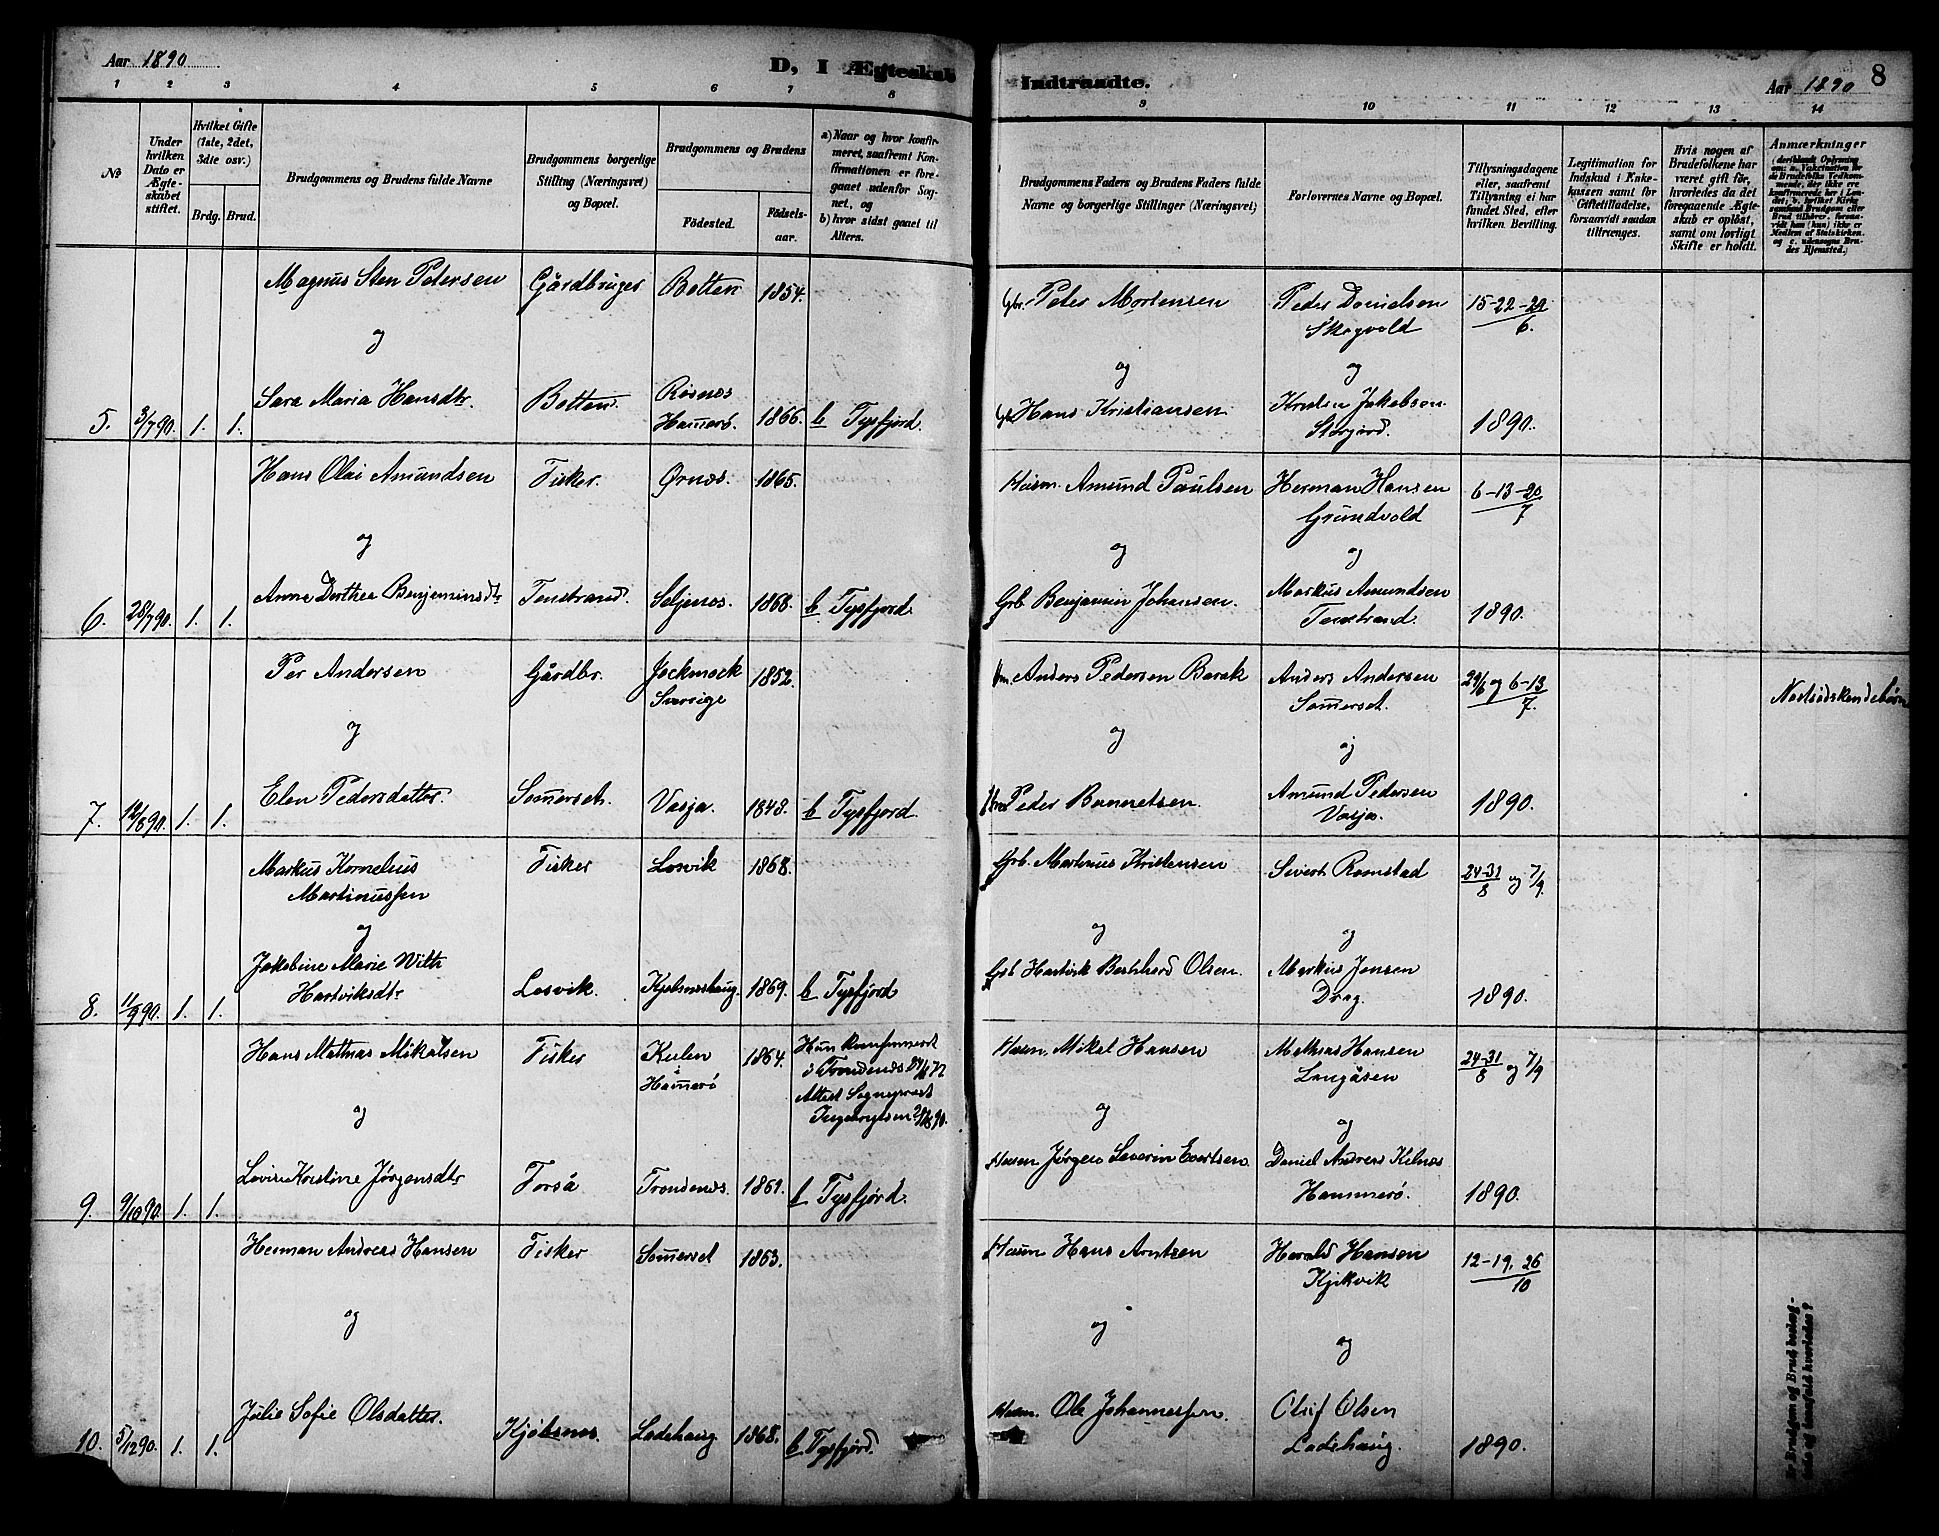 Aar 1890
D, I Ægteskab
Indtraadte.
Aar 1890
8
1 2 3 4 5 6 7 8 9 10 11 12 13 14
No
Under hvilken Dato er Ægteskabet stiftet.
Hvilket Gifte (1ste, 2det, 3die osv.)
Brdg. Brud.
Brudgommens og Brudens fulde Navne
Brudgommens borgerlige Stilling (Næringsvei) og Bopæl.
Brudgommens og Brudens
Födested.
Födselsaar.
a) Naar og hvor konfirmeret, saafremt Konfirmationen er foregaaet udenfor Sognet, og
b) hvor sidst gaaet til Alters.
Brudgommens Faders og Brudens Faders fulde Navne og borgerlige Stillinger (Næringsvei)
Forlovernes Navne og Bopæl.
Tillysningsdagene eller, saafremt Tillysning ei har fundet Sted, efter hvilken Bevilling.
Legitimation for Indskud i Enkekassen samt for Giftetilladelse, forsaavidt saadan tiltrænges.
Hvis nogen af Brudefolkene har været gift før, hvorledes da det foregaaende Ægteskab er opløst, samt om lovligt Skifte er holdt.
Anmærkninger
Magnus Sten Petersen Gårdbruger Botten 1854. Gbr. Peter Mortensen Peder Danielsen 15-22-29/6.
Skogvold
og og og
Sara Maria Hansdtr. Botten. Røsnes 1866. b Tysfjord. Hans Kristiansen. Kristen Jakobsen
5. 3/7 90. 1. 1. Hamerø. Storjord. 1890.
Hans Olai Amundsen Fisker. Ørnes. 1865. Husm. Amund Paulsen Herman Hansen 6-13-20/7
Grundvold
og og og
Anna Dorthea Benjaminsdtr Tenstrand. Seljenes. 1868. b Tysfjord. Grb Benjamin Johansen. Markus Amundsen
6. 28/7 90. 1. 1. Tenstrand. 1890.
Per Andersen Gårdbr. Jockmock 1852. Anders Pedersen Barak Anders Andersen 29/6 og 6-13/7.
Sverrige Somerset. Næstsødskendebørn
og og og
Elen Pedersdatter. Somerset. Vasja. 1848. b Tysfjord. Peder Amund Pedersen
7. 1. 1. Vasja. 1890.
Markus Kornelius Fisker Losvik 1868. Grb. Martinus Kristensen Sivert Romstad 24-31/8 og 7/9.
Martinussen
og og og
Jakobine Marie Wilh. Grb Hartvik Bernhard Olsen. Markus Jensen
Hartviksdtr Losvik. Kjelsneshaug. 1869. b Tysfjord Drag.
8. 11/9 90. 1. 1. 1890.
Hans Mathias Mikalsen Fisker Kulen 1864. Hun konfirmeret Husm. Mikal Hansen Mathias Hansen 24-31/8 og 7/9
i Hamerø i Trondenæs Langåsen
Attest Sogneprest
og og og
Lovise Kristine Jørgensdtr Forså Trondenæs. 1861. b Tysfjord. Husm Jørgen Severin Evertsen Daniel Andreas Kilnes
9. 9/10 90. 1. 1. Hammerø. 1890.
Herman Andreas Hansen Fisker Somerset 1863. Husm Hans Arntzen Harald Hansen 12-19, 26/10
Kjikvik
og og og
Julie Sofie Olsdatter. Kjøbsnes. Ladehaug 1868. b Tysfjord. Husm. Ole Johannessen. Oluf Olsen
10. 5/12 90. 1. 1. Ladehaug. 1890.
Er Brudgom og Brud beslægtede og i saafald hvorledes?